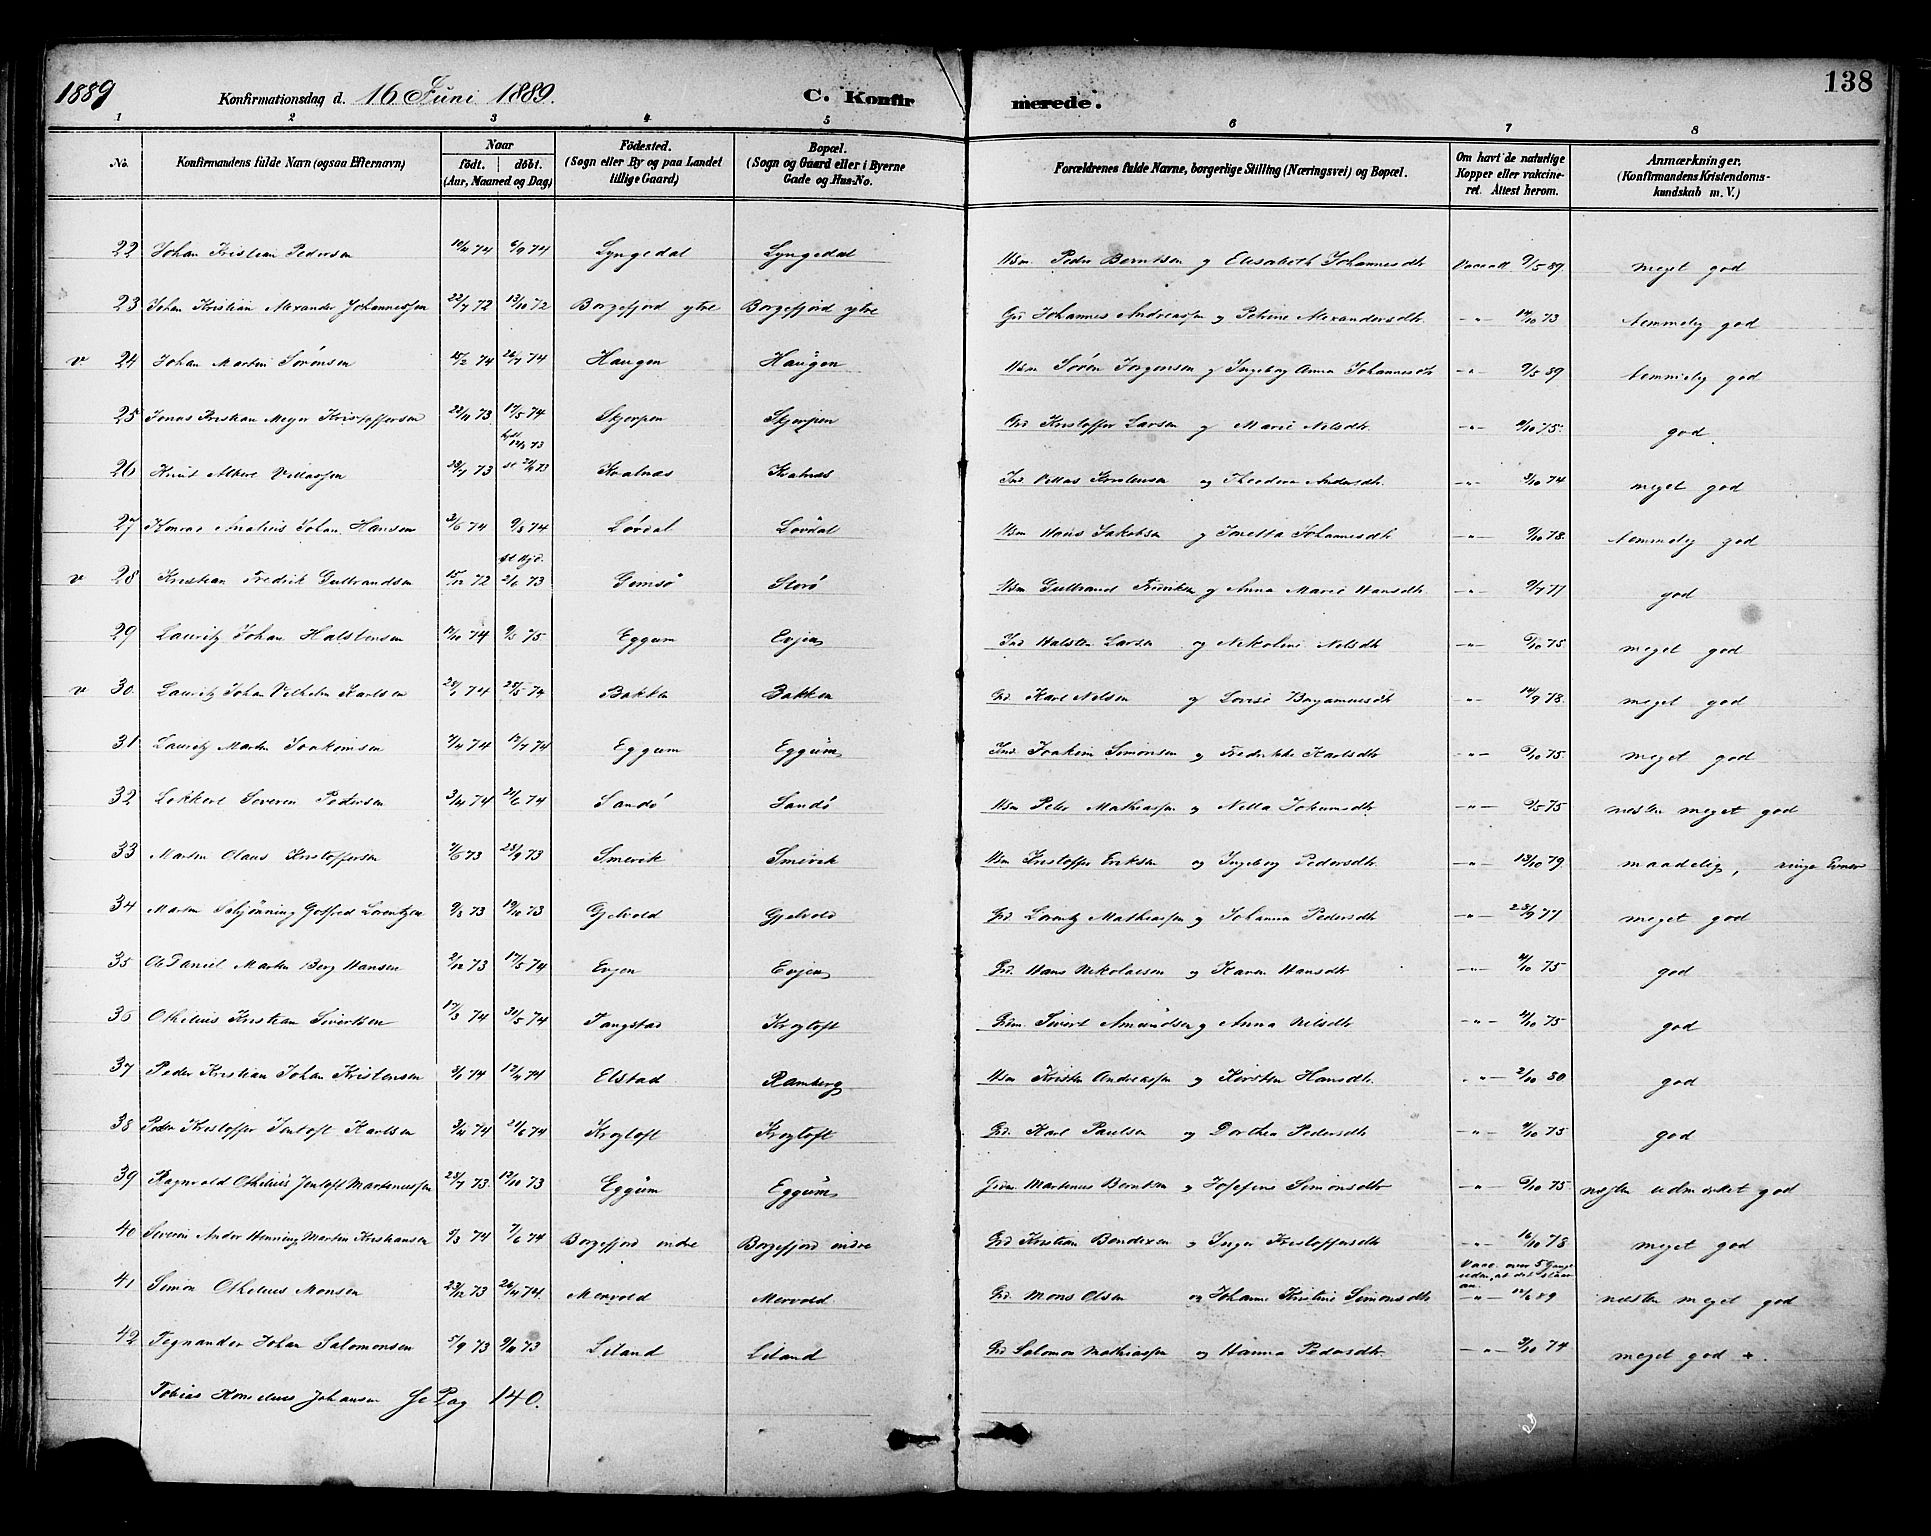 1889 Konfirmationsdag d. 16 Juni 1889. C. Konfirmerede. 138
1 2 3 4 5 6 7 8
No. Konfirmandens fulde Navn (ogsaa Efternavn) Naar födt. döbt. (Aar, Maaned og Dag) Födested. (Sogn eller By og paa Landet tillige Gaard) Bopæl. (Sogn og Gaard eller i Byerne Gade og Hus-No. Forældrenes fulde Navne, borgerlige Stilling (Næringsvei) og Bopæl. Om havt de naturlige Kopper eller vakcineret. Attest herom. Anmærkninger. (Konfirmandens Kristendomskundskab m. V.)
22 Johan Kristian Pedersen 74 6/9 74 Lyngedal Lyngedal Hsm Peder Berntsen og Elisabeth Johannesdtr 9/5 89 meget god
23 Johan Kristian Alexander Johannessen 22/7 72 13/10 72 Borgefjord ytre Borgefjord ytre Johannes Andreassen og Petrine Alexandersdtr. -"- 14/10 73 temmelig god
v. 24 Johan Martin Sörensen 15/2 74 26/7 74 Haugen Haugen Hsm Sören Jörgensen og Ingeborg Anna Johannesdtr -"- 9/5 89 temmelig god
25 Jonas Kristian Meyer Kristoffersen 22/11 73 17/5 74 Skjerpen Skjerpen Grd Kristoffer Larsen og Marie Nelsdtr. -"- 75. god.
26 Knut Albert Villassen 23/7 73 Kvalnæs Kvalnæs Ind. Villas Kristensen og Theodora Andersdtr. -"- 3/10 74 meget god
27 Konrad Johan Hansen 3/6 74 9/8 74 Lövdal Lövdal Hsm Hans Jakobsen og Jonetta Johannesdtr -"- 9/10 78. temmelig god
v 28 Kristian Fredrik Gulbrandsen 15/12 72 2/6 73 Gimsö Storö Hsm Gulbrand Fredriksen og Anna Marie Hansdtr. -"- 9/7 77 god
29 Lauritz Johan Halstensen 74 75 Eggum Evjen Ind Halsten Larsen og Nikoline Nelsdtr -"- 6/10 75 meget god
v 30. Lauritz Johan Vilhelm Karlsen 74 25/5 74 Bakken Bakken Grd. Karl Nelsen og Lovise -"- 14/9 78. meget god
31 Lauritz Martin Joakimsen 74 12/7 74 Eggum Eggum Ind. Joakim Simonsen og Frederikke Karlsdtr -"- 6/10 75. meget god
32 Lekkert Severin Pedersen 3/4 74 21/6 74 Sandö Sandö Hsm Peter Mathiassen og Netta Jokumsdtr. -"- 9/5 75 næsten meget god
33 Martin Olaus Kristoffersen 73 28/9 73 Smevik Smevik Hsm Kristoffer Eriksen og Ingeborg Pedersdtr. -"- 13/10 79. maadelig, ringe Evner
34 Martin Schjönning Gotfred Lorentzen 9/8 73 19/10 73 Gjelvold Gjelvold Grd. Lorentz Mathiassen og Johanna Pedersdtr -"- 23/9 77 meget god
35 Ole Daniel Martin Berg Hansen 2/12 73 17/5 74 Evjen Evjen Grd. Hans Nikolaisen og Karen Hansdtr -"- 75 god
36 Othelius Kristian Sivertsen 17/3 74 31/5 74 Tangstad Krogtoft Grdm. Sivert Amundsen og Anna Nilsdtr -"- 75 god
37 Peder Kristian Johan Kristensen 74 12/4 74 Elstad Ramberg Hsm Kristen Andreassen og Kirsten Hansdtr. -"- 2/10 80 god
38 Peder Kristoffer Jentoft Karlsen 3/4 74 21/6 74 Krogtoft Krogtoft Grd. Karl Paulsen og Dorthea Pedersdtr -"- 75 god
39 Ragnvald Othelius Jentoft Martinussen 28/7 73. 12/10 73 Eggum Eggum Martinus Berntsen og Josefine Simonsdtr -"- 6/10 75. næsten udmærket god
40 Severin Ander Henning Martin Kristiansen 5/3 74 7/6 74 Borgefjord indre Borgefjord indre Grd Kristian Bendixen og Inger Kristoffersdtr -"- 16/10 78 meget god
41 Simon Othelius Monsen 23/12 73 26/4 74. Mervold Mervold Grd. Mons Olsen og Johanne Kristine Simonsdtr Vacc. over 5 Gange uden, at det slaar an. -"- 89 næsten meget god
42 Tegnander Johan Salomonsen 5/9 73 9/11 73 Leland Leland Grd Salomon Mathiassen og Hanna Pedersdtr. -"- 3/10 74 meget god +.
Tobias Kornelius Johansen Se Pag 140.